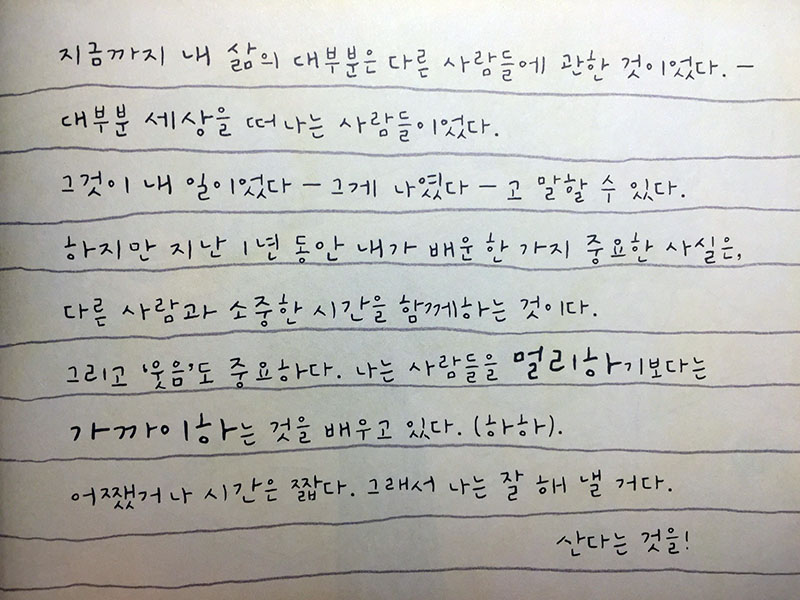 지금까지 내 삶의 대부분은 다른 사람들에 관한 것이었다. —
대부분 세상을 떠나는 사람들이었다.
그것이 내 일이었다 — 그게 나였다 — 고 말할 수 있다.
하지만 지난 1년 동안 내가 배운 한 가지 중요한 사실은,
다른 사람과 소중한 시간을 함께하는 것이다.
그리고 '웃음'도 중요하다. 나는 사람들을 멀리하기보다는
가까이하는 것을 배우고 있다. (하하).
어쨌거나 시간은 짧다. 그래서 나는 잘 해 낼 거다.
산다는 것을!